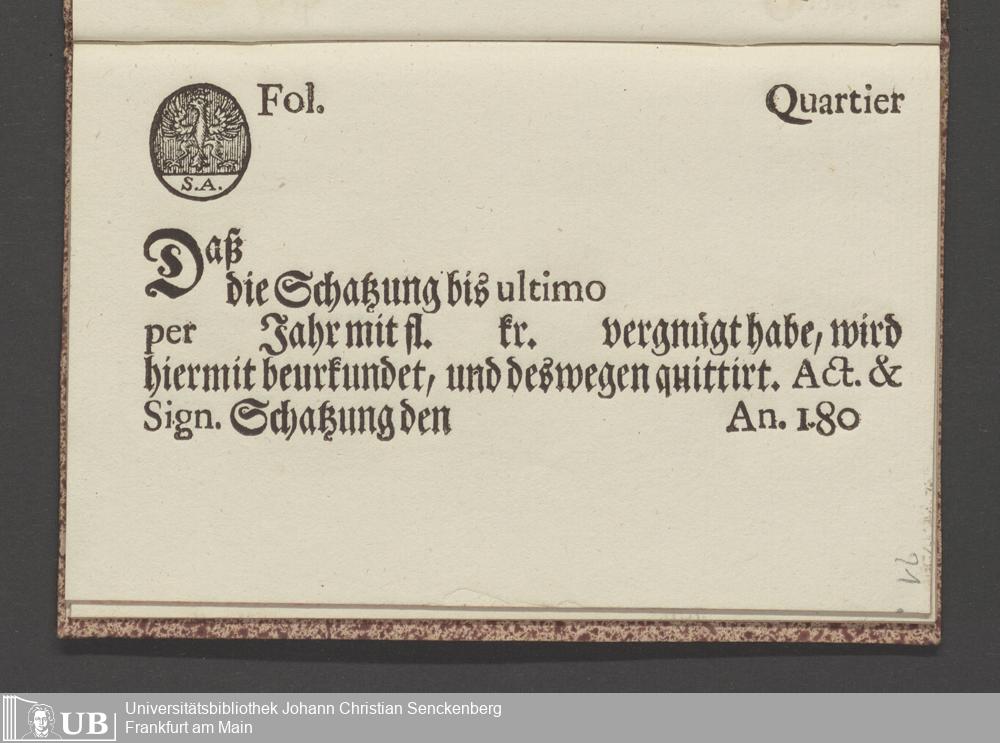 Fol. Quartier
S.A.
Daß
die Schatzung bis ultimo
per Jahr mit fl. kr. vergnügt habe, wird
hiermit beurkundet, und deswegen quittirt. Act. &
Sign. Schatzung den An. 1.80
Universitätsbibliothek Johann Christian Senckenberg
Frankfurt am Main
UB